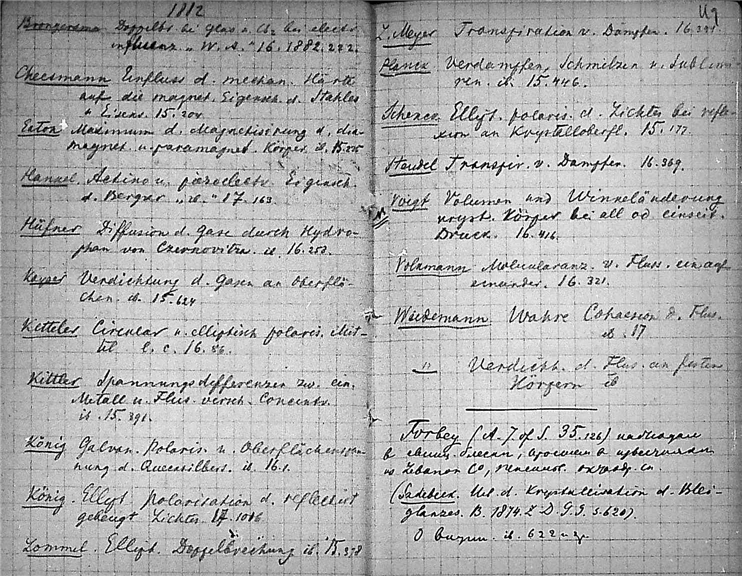 1882
Brongersma Doppelbr. bei Glas u. CS₂ bei electr.
influenz. „ W. A. " 16. 1882. 222.
Cheesmann Einfluss d. mechan. Härte
auf die magnet. Eigensch. d. Stahles
u Eisens. 15. 204
Eaton Maximum d. Magnetisirung d. dia-
magnet. u. paramagnet. Körper ib. 15.
Hankel Actino u. piezoelectr. Eigensch.
d. Bergkr „ ib. " 17. 163.
Hüfner Diffusion d. Gase durch Hydro-
phan von Czernovitza. ib. 16. 253.
Kayser Verdichtung d. Gasen an Oberflä-
chen. ib. 15. 624
Ketteler Circular u. elliptisch polaris. Mit-
tel l. c. 16. 86.
Kittler Spannungsdifferenzen zw. ein.
Metall u. Flüs. versch. Concentr.
ib. 15. 391.
König Galvan. Polaris. u. Oberflächenspan-
nung d. Quecksilbers. ib. 16. 1.
König. Ellipt. polarisation d. reflectirt
gebeugt Lichtes. 17. 1016
Lommel. Ellipt. Doppelbrechung ib. 15. 378
L. Meyer Transpiration v. Dämpfen. 16.
Planck Verdampfen, Schmelzen u. Sublimi-
ren. ib. 15. 446.
Schenck Ellipt. polaris. d. Lichtes bei refle-
xion an Krystalloberfl. 15. 177.
Steudel Transpir. v. Dampfen. 16. 369.
Voigt Volumen und Winkeländerung
kryst. Körper bei all od. einseit.
Druck. 16. 416.
Volkmann Molecularanz. v. Fluss. ein. auf
einander. 16. 321.
Wiedemann Wahre Cohaesion d. Flus.
ib. 17
" Verdicht. d. Flus. an festen
Körpern ib
Torbey (A. J. of S. 35. 126)
в свинц.
из Lebanon Co,
(Sadebeck. Ub. d. Krystallisation d. Blei-
glanzes. B. 1874. Z. D. G. G. S. 620).
О ib. 622